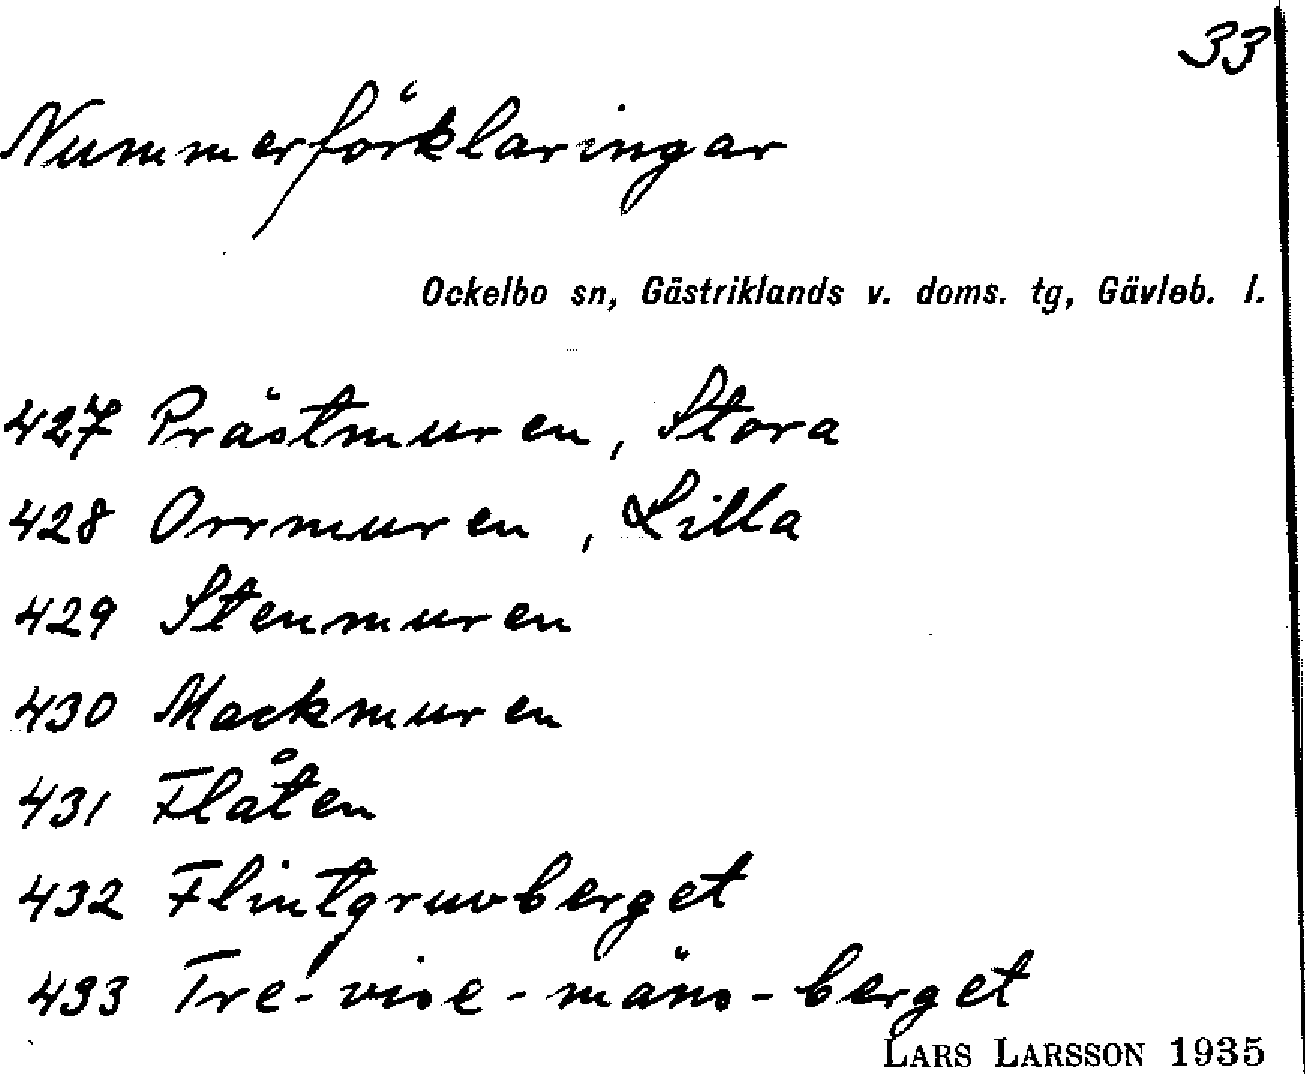 33
Nummerförklaringar
Ockelbo sn, Gästriklands v. doms. tg, Gävleb. l.
427 Prästmuren, Stora
428 Orrmuren, Lilla
429 Stenmuren
430 Mackmuren
431 Flåten
432 Flintgruvberget
433 Tre-vise-mäns-berget
LARS LARSSON 1935